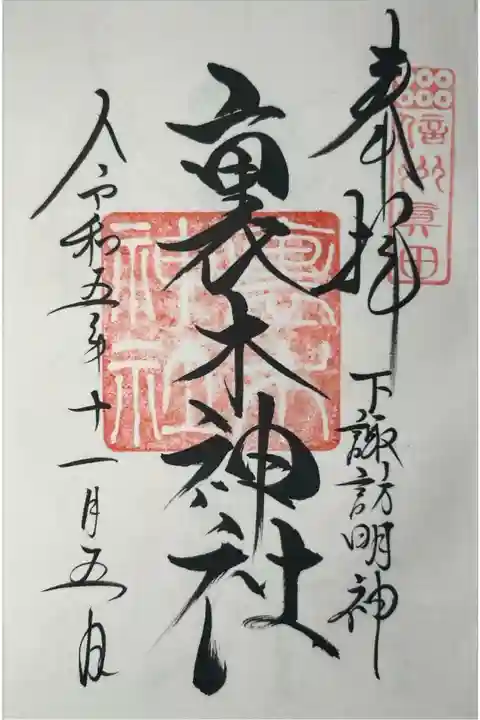 信州眞田
奉拝
下諏訪明神
裏木神社
令和五年十一月五日